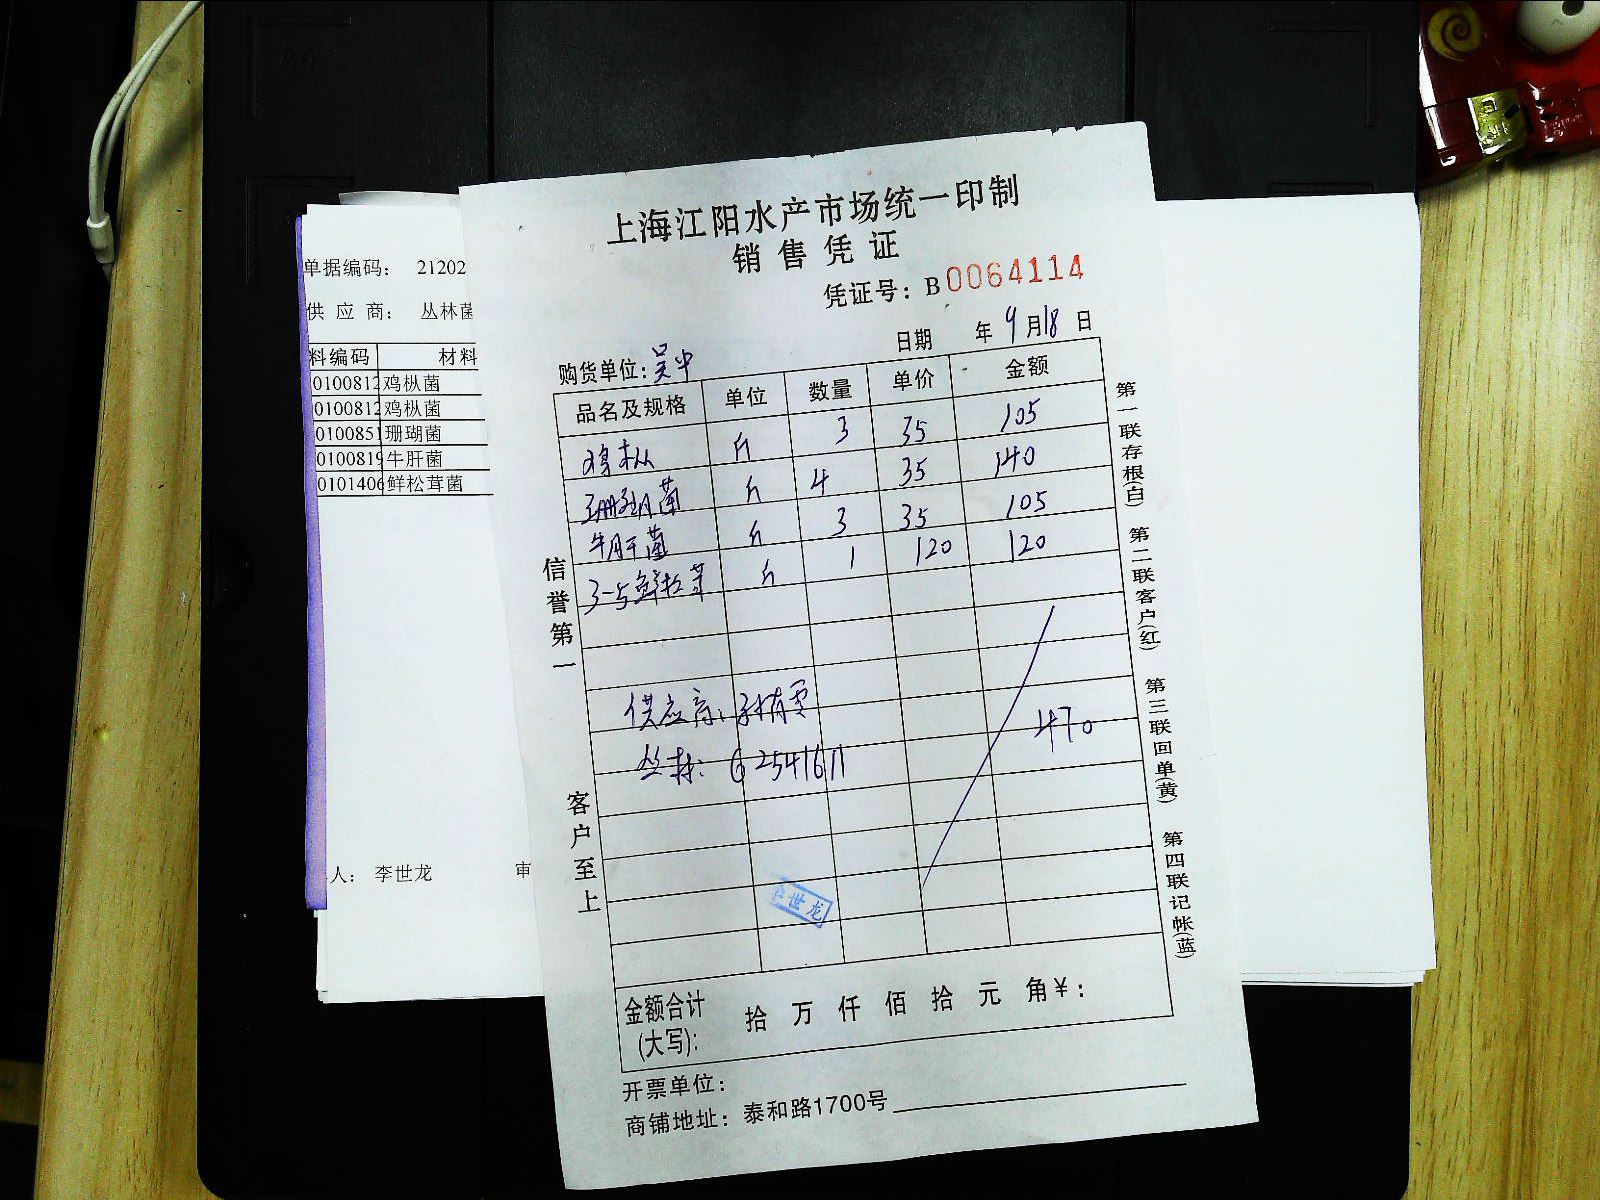 上海江阳水产市场统一印制
销售凭证
凭证号：B 0064114
日期 年 9 月 18 日
购货单位：吴中
品名及规格 单位 数量 单价 金额
鸡枞 斤 3 35 105
珊瑚菌 斤 4 35 140
牛肝菌 斤 3 35 105
3-5鲜松茸 斤 1 120 120
供应商：
470
丛林：62541611
世龙
金额合计 拾 万 仟 佰 拾 元 角 ¥：
(大写)：
开票单位：
商铺地址：泰和路1700号
信誉第一
客户至上
第一联存根(白)
第二联客户(红)
第三联回单(黄)
第四联记帐(蓝)
单据编码： 21202
供应商： 丛林菌
料编码 材料
0100812 鸡枞菌
0100812 鸡枞菌
010085 珊瑚菌
0100819 牛肝菌
0101406 鲜松茸菌
人： 李世龙 审